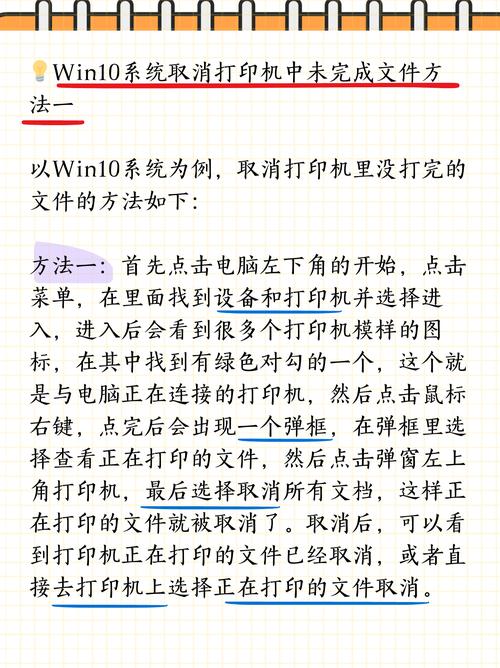 Win10系统取消打印机中未完成文件方
法一
以Win10系统为例，取消打印机里没打完的
文件的方法如下：
方法一：首先点击电脑左下角的开始，点击
菜单，在里面找到设备和打印机并选择进
入，进入后会看到很多个打印机模样的图
标，在其中找到有绿色对勾的一个，这个就
是与电脑正在连接的打印机，然后点击鼠标
右键，点完后会出现一个弹框，在弹框里选
择查看正在打印的文件，然后点击弹窗左上
角打印机，最后选择取消所有文档，这样正
在打印的文件就被取消了。取消后，可以看
到打印机正在打印的文件已经取消，或者直
接去打印机上选择正在打印的文件取消。